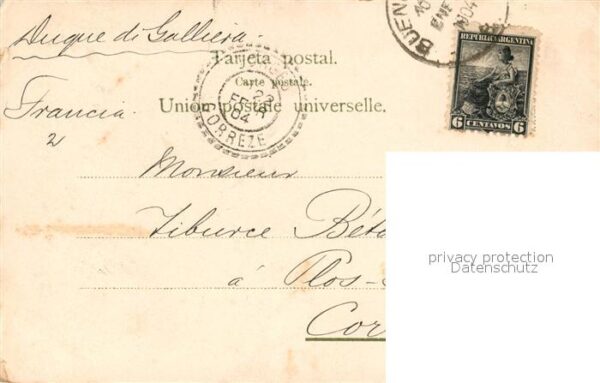 Duque di Galliera
Tarjeta postal.
Carte postale.
Union postale universelle.
Francia
2
BUEN
16
ENE
904
REPUBLICA ARGENTINA
6 CENTAVOS 6
22
FEVR
04
CORREZE
Monsieur
Tiburce Béto
à Plos-
Cor
privacy protection
Datenschutz